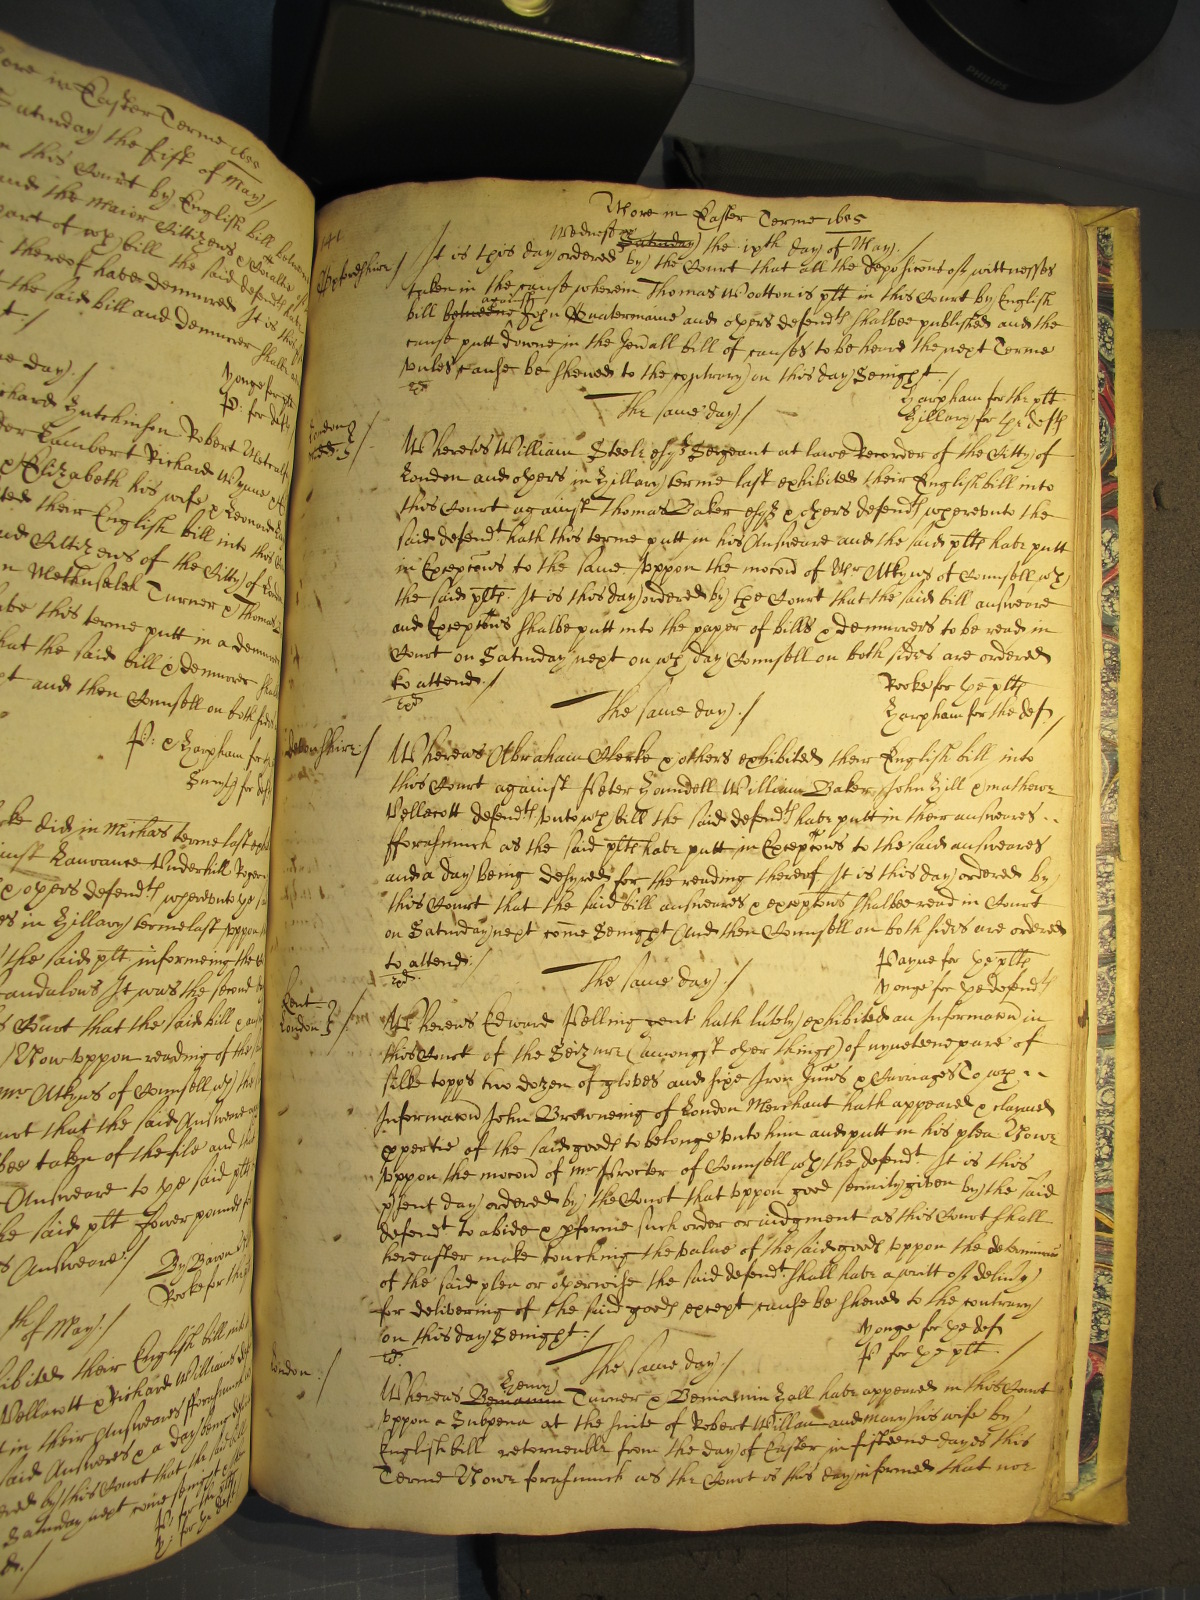 More in Easter Terme 1655
Saturday the fift of May /
this Court by English bill betweene
and the Maior Cittizens & Coialty
part of wch bill the said defendts have
thereof have demurred It is this
the said bill and Demurrer shalbe
t. /
Yonge for plt
P: for defts
day. /
Richard Hutchinson Robert Metcalfe
Lambert Richard Wynne
& Elizabeth his wife & Bernard
their English bill into this
and Cittizens of the Citty of London
Methuselah Turner & Thomas
have this terme putt in a demurrer
that the said bill & demurrer shall
and then Counsell on both sides
P: & Harpham for
for deft
did in Michas terme last
Laurance Underhill Roger
& others defendts whereunto the
in Hillary terme last uppon
the said plt informeing the
scandalous It was the second
Court that the said bill
Now uppon reading of the
Mr Atkyns of Counsell wth the
that the said Answeare
taken of the file and
Answeare to ye said plts
the said plt fower pounds
Answeare: /
By Baron
Rooke for the plt
th of May. /
exhibited their English bill into
Vellacott & Richard Williams
in their Answeares fforasmuch
said Answeares & a day being
ordered by this Court that the said bill
Saturday next come senight
P: for the plts
Y: for ye defts
141
More in Easter Terme 1655
Wednesday
Saturday the ixth day of May. /
Oxfordshire /
It is this day ordered by the Court that all the deposicons of wittnesses
taken in the cause wherein Thomas Wootton is plt in this Court by English
against
bill betweene John Quatermaine and others defendts shalbee published and the
cause putt downe in the Genall bill of causes to be heard the next Terme
unles cause be shewed to the contrary on this day Senight. /
Harpham for the plt
The same day /
Hillary for ye defts
London
Midd.
Whereas William Steele esqr Sergeant at lawe Recorder of the Citty of
London and others in Hillary terme last exhibited their English bill into
this Court against Thomas Baker esqr & others defendts whereunto the
said defendts hath this terme putt in his Answeare and the said plts have putt
in Excepcons to the same Uppon the mocon of Mr Atkyns of Counsell wth
the said plts It is this day ordered by the Court that the said bill answeare
and Excepcons shalbe putt into the paper of bills & demurrers to be read in
Court on Saturday next on wch day Counsell on both sides are ordered
to attend. /
Rooke for ye plts
The same day. /
Harpham for the deft /
Devonshire /
Whereas Abraham Clerke & others exhibited their English bill into
this Court against Peter Hamdell William Baker John Hill & Mathewe
Vellacott defendts unto wch bill the said defendts have putt in their answeares
fforasmuch as the said plts have putt in Excepcons to the said answeares
and a day being desyred for the reading thereof It is this day ordered by
this Court that the said bill answeares & excepcons shalbee read in Court
on Saturday next come Senight And then Counsell on both sides are ordered
to attend. /
Payne for ye plts
The same day. /
Yonge for ye defendts
Kent
London
Whereas Edward Pelling gent hath lately exhibited an Informacon in
this Court of the Seizure (amongst other things) of nyneteene pare of
silke topps two dozen of gloves and sixe Iron Guns & Carriages To wch
Informacon John Browneing of London Merchant hath appeared & claymed
pertie of the said goods to belonge unto him and putt in his plea Nowe
uppon the mocon of Mr Procter of Counsell wth the defendt It is this
psent day ordered by the Court that uppon good security given by the said
defendt to abide & pforme such order or iudgment as this Court shall
hereafter make touching the value of the said goods uppon the determinacon
of the said plea or otherwise the said defendt shall have a writt of delivy
for delivering of the said goods except cause be shewed to the contrary
on this day Senight. /
Yonge for ye deft
The same day. /
P for ye plt
London: /
Henry
Whereas Beniamin Turner & Beniamin Hall have appeared in this Court
uppon a Subpena at the suite of Robert Willan and Mary his wife by
English bill retorneable from the day of Easter in fifteene dayes this
Terme Nowe forasmuch as the Court is this day informed that noe
PHILIPS